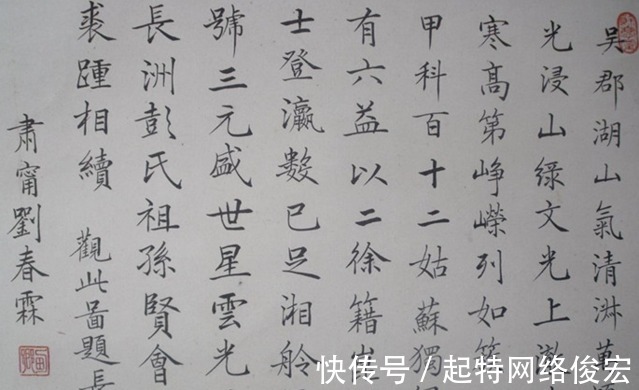 吳郡湖山氣清淑
光浸山綠文光上
寒高第崢嶸列如
甲科百十二姑蘇獨
有六益以二徐籍
士登瀛數已足湘舲
號三元盛世星雲光
長洲彭氏祖孫賢會
裘踵相續 觀此圖題長
肅甯劉春霖
快传号 / 起特网络俊宏